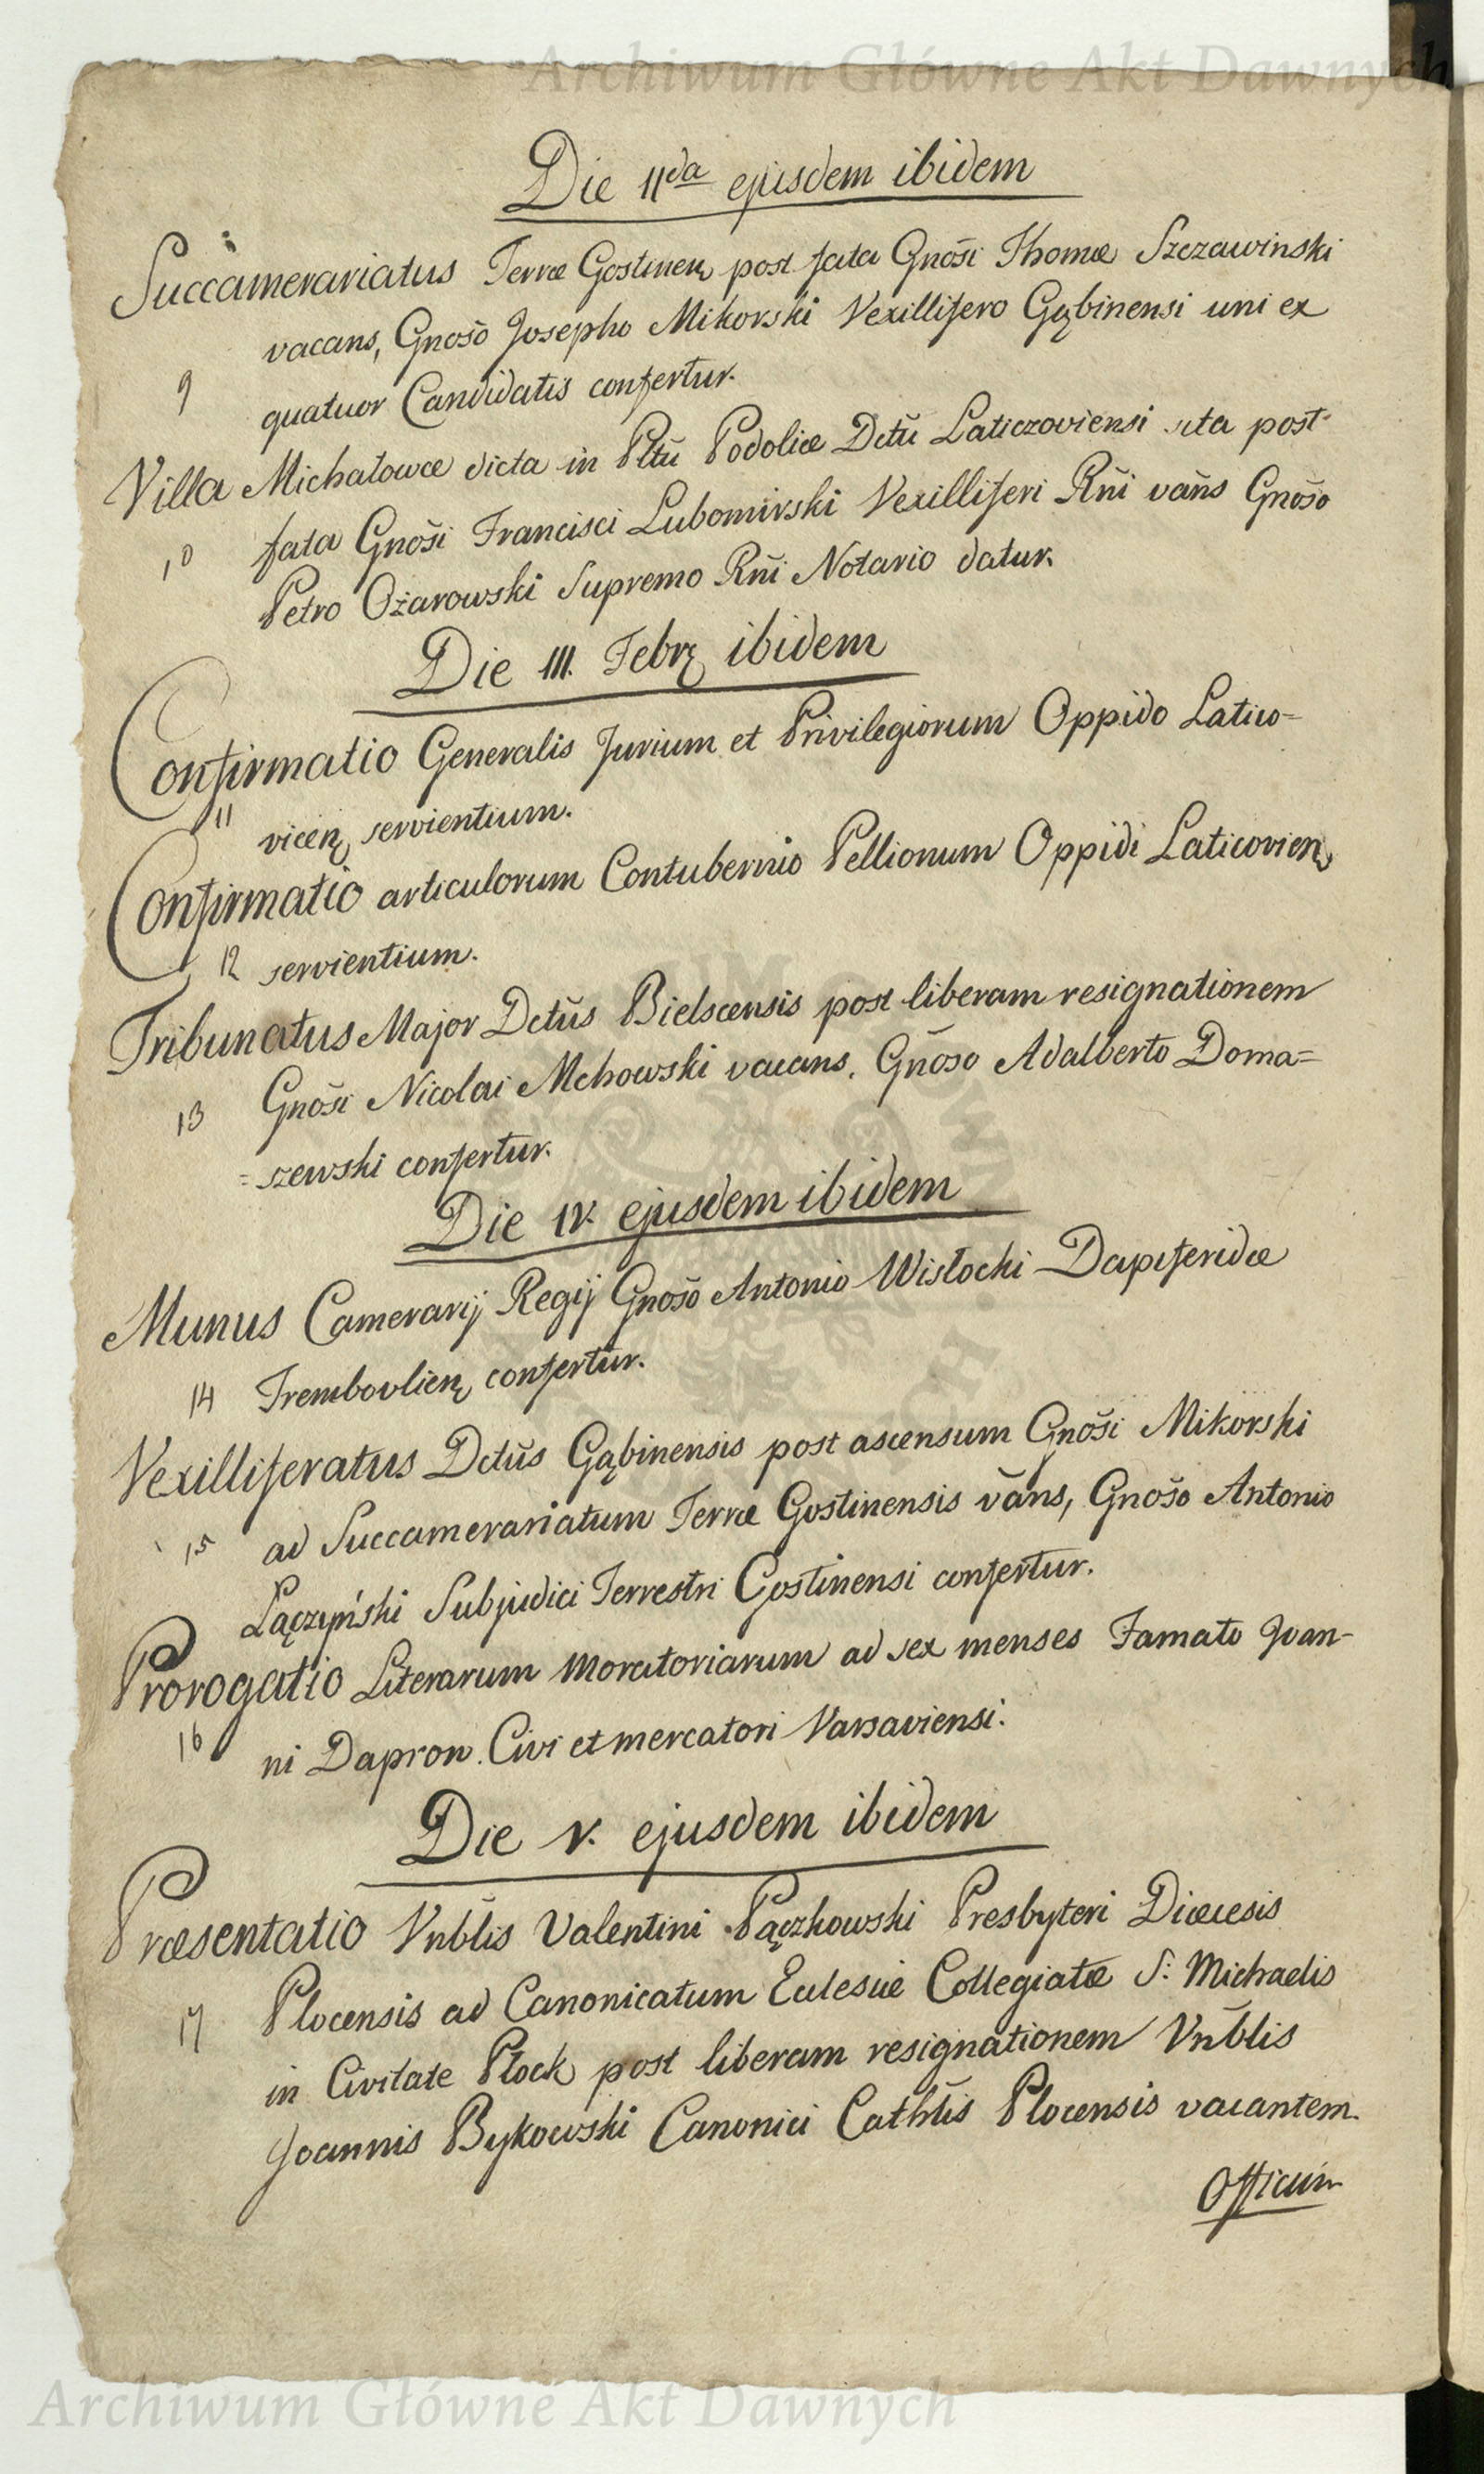 Archiwum Główne Akt Dawnych
Die 11da ejusdem ibidem
Succamerariatus Terræ Gostinen post fata Gnosi Thomæ Szczawinski
vacans, Gnoso Josepho Mikorski Vexillifero Gąbinensi uni ex
9 quatuor Candidatis confertur.
Villa Michałowce dicta in Pltu Podoliæ Dctu Laticzoviensi sita post
10 fata Gnosi Francisci Lubomirski Vexilliferi Rni vans Gnoso
Petro Ożarowski Supremo Rni Notario datur.
Die III. Febr ibidem
Confirmatio Generalis Jurium et Privilegiorum Oppido Latico=
11 vicen servientium.
Confirmatio articulorum Contubernio Pellionum Oppidi Laticovien
12 servientium.
Tribunatus Major Dctus Bielscensis post liberam resignationem
13 Gnosi Nicolai Mchowski vacans. Gnoso Adalberto Doma=
=szewski confertur.
Die IV. ejusdem ibidem
Munus Camerarij Regij Gnoso Antonio Wisłocki Dapiferidæ
14 Trembovlien confertur.
Vexilliferatus Dctus Gąbinensis post ascensum Gnosi Mikorski
15 ad Succamerariatum Terræ Gostinensis vans, Gnoso Antonio
Łączyński Subjudici Terrestri Gostinensi confertur.
Prorogatio Literarum moratoriarum ad sex menses Famato Joan-
16 ni Dapron Civi et mercatori Varsaviensi.
Die V. ejusdem ibidem
Præsentatio Vnblis Valentini Pączkowski Presbyteri Diæcesis
17 Plocensis ad Canonicatum Eclesiæ Collegiatæ S: Michaelis
in Civitate Płock post liberam resignationem Vnblis
Joannis Bykowski Canonici Cathlis Plocensis vacantem.
Officium
Archiwum Główne Akt Dawnych